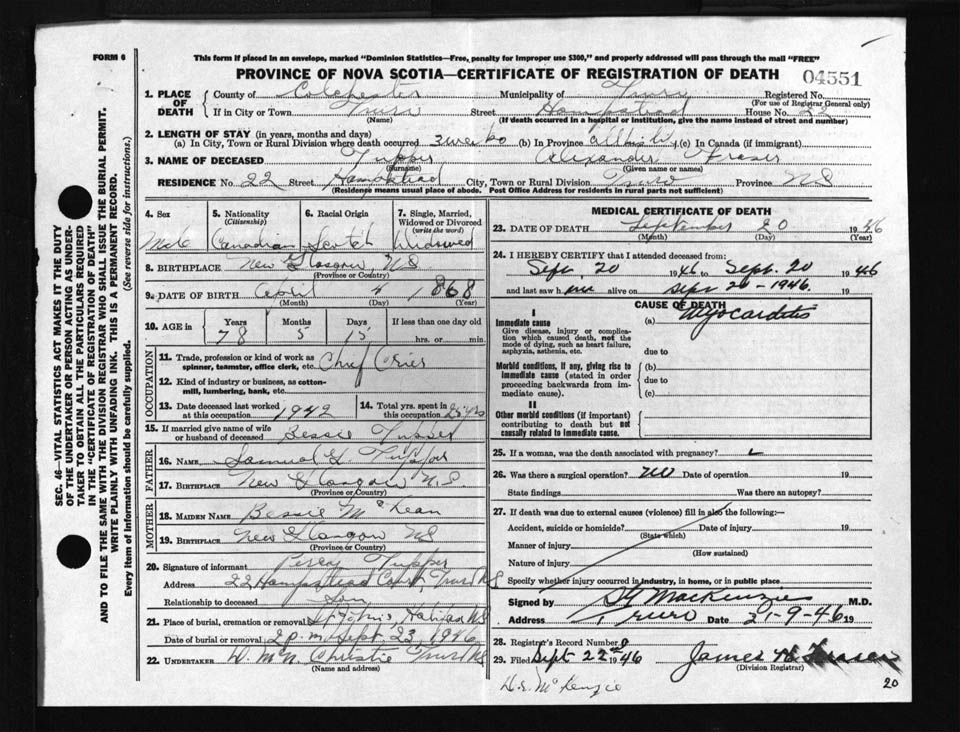 FORM 6
This form if placed in an envelope, marked "Dominion Statistics—Free, penalty for improper use $300," and properly addressed will pass through the mail "FREE"
PROVINCE OF NOVA SCOTIA—CERTIFICATE OF REGISTRATION OF DEATH 04551
1. PLACE OF DEATH County of Colchester Municipality of Truro Registered No.
(For use of Registrar General only)
If in City or Town Truro Street Hampstead House No. 22
(Name) (If death occurred in a hospital or institution, give the name instead of street and number)
2. LENGTH OF STAY (in years, months and days)
(a) In City, Town or Rural Division where death occurred 3 weeks (b) In Province all his life (c) In Canada (if immigrant)
3. NAME OF DECEASED Tupper Alexander Fraser
(Surname) (Given name or names)
RESIDENCE No. 22 Street Hampstead City, Town or Rural Division Truro Province NS
(Residence means usual place of abode. Post Office Address for residents in rural parts not sufficient)
4. Sex 5. Nationality (Citizenship) 6. Racial Origin 7. Single, Married, Widowed or Divorced (write the word)
Male Canadian Scotch Widowed
8. BIRTHPLACE New Glasgow, NS
(Province or Country)
9. DATE OF BIRTH April 4 1868
(Month) (Day) (Year)
10. AGE in Years Months Days If less than one day old
78 5 15 hrs. or min.
OCCUPATION
11. Trade, profession or kind of work as spinner, teamster, office clerk, etc. Chief
12. Kind of industry or business, as cotton-mill, lumbering, bank, etc.
13. Date deceased last worked at this occupation 1942 14. Total yrs. spent in this occupation 25 yrs
15. If married give name of wife or husband of deceased Bessie Tupper
FATHER
16. NAME Samuel Tupper
17. BIRTHPLACE New Glasgow N.S.
(Province or Country)
MOTHER
18. MAIDEN NAME Bessie McKean
19. BIRTHPLACE New Glasgow NS
(Province or Country)
20. Signature of informant Percy Tupper
Address 22 Hampstead Court, Truro NS
Relationship to deceased Son
21. Place of burial, cremation or removal St Johns, Halifax NS
Date of burial or removal 2 p.m. Sept 23, 1946
22. UNDERTAKER Christie Truro NS
(Name and address)
MEDICAL CERTIFICATE OF DEATH
23. DATE OF DEATH September 20 1946
(Month) (Day) (Year)
24. I HEREBY CERTIFY that I attended deceased from:
Sept. 20 1946 to Sept. 20 1946
and last saw him alive on Sept 20 - 1946. 19
CAUSE OF DEATH
I
Immediate cause (a) Myocarditis
Give disease, injury or complication which caused death, not the mode of dying, such as heart failure, asphyxia, asthenia, etc.
due to
Morbid conditions, if any, giving rise to immediate cause (stated in order proceeding backwards from immediate cause).
(b)
due to
(c)
II
Other morbid conditions (if important) contributing to death but not causally related to immediate cause.
25. If a woman, was the death associated with pregnancy?
26. Was there a surgical operation? No Date of operation 19
State findings Was there an autopsy?
27. If death was due to external causes (violence) fill in also the following:—
Accident, suicide or homicide? Date of injury 19
(State which)
Manner of injury
(How sustained)
Nature of injury
Specify whether injury occurred in industry, in home, or in public place
Signed by MacKenzie M.D.
Truro Date 21-9-46 19
28. Registrar's Record Number
29. Filed Sept 22nd 1946 James Fraser
(Division Registrar)
McKenzie
20
SEC. 46—VITAL STATISTICS ACT MAKES IT THE DUTY
OF THE UNDERTAKER OR PERSON ACTING AS UNDER-
TAKER TO OBTAIN ALL THE PARTICULARS REQUIRED
IN THE "CERTIFICATE OF REGISTRATION OF DEATH"
AND TO FILE THE SAME WITH THE DIVISION REGISTRAR WHO SHALL ISSUE THE BURIAL PERMIT.
WRITE PLAINLY WITH UNFADING INK. THIS IS A PERMANENT RECORD.
Every item of information should be carefully supplied. (See reverse side for instructions.)